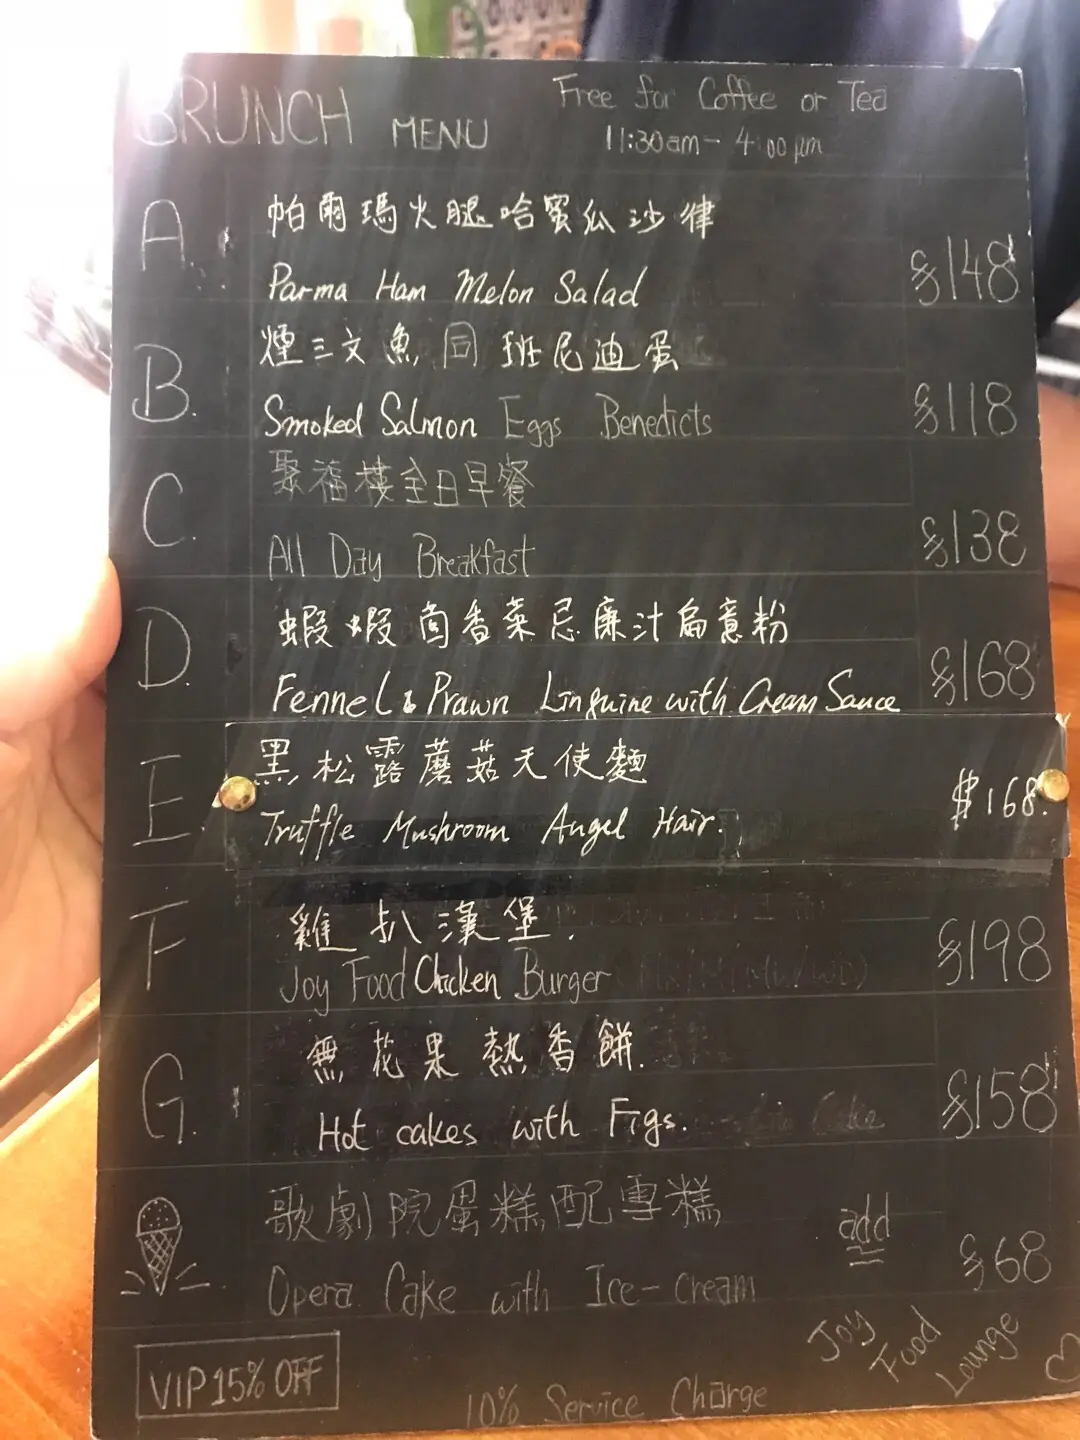 BRUNCH MENU
Free for Coffee or Tea
11:30am - 4:00 pm
A.
帕爾瑪火腿哈蜜瓜沙律
Parma Ham Melon Salad
$148
B.
煙三文魚同班尼迪蛋
Smoked Salmon Eggs Benedicts
$118
C.
聚福樓全日早餐
All Day Breakfast
$138
D.
蝦蝦茴香菜忌廉汁扁意粉
Fennel & Prawn Linguine with Cream Sauce
$168
E.
黑松露蘑菇天使麵
Truffle Mushroom Angel Hair.
$168.
F
雞扒漢堡.
Joy Food Chicken Burger
$198
G.
無花果熱香餅.
Hot cakes with Figs.
$158
歌劇院蛋糕配雪糕
Opera Cake with Ice-cream
add
$68
VIP 15% OFF
10% Service Charge
Joy Food Lounge